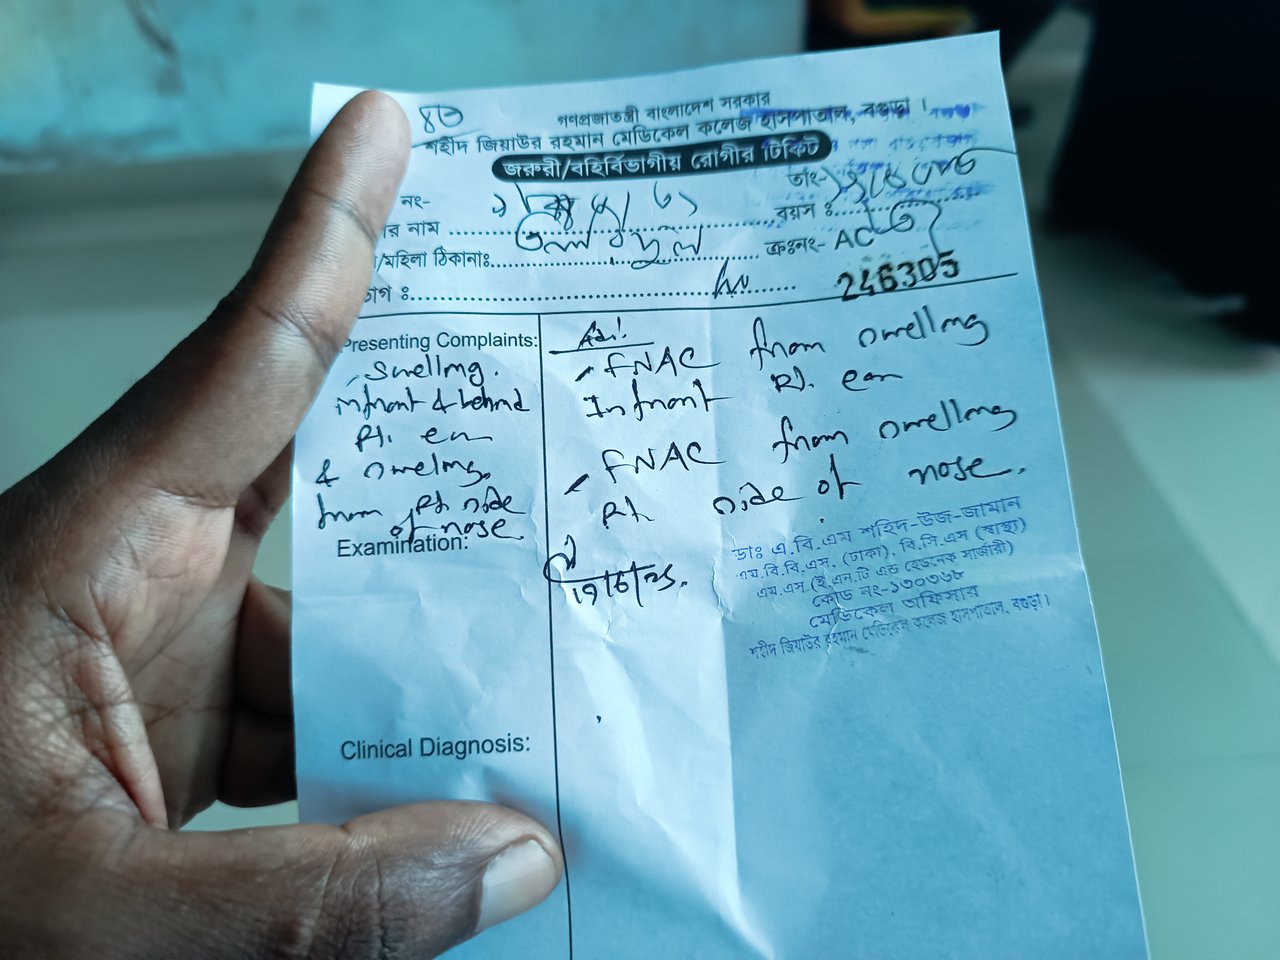 গণপ্রজাতন্ত্রী বাংলাদেশ সরকার
শহীদ জিয়াউর রহমান মেডিকেল কলেজ হাসপাতাল, বগুড়া ।
জরুরী/বহির্বিভাগীয় রোগীর টিকিট
নং-
তাং-
র নাম
বয়স ঃ
/মহিলা ঠিকানাঃ
ক্রঃনং- AC
246305
গ ঃ
Presenting Complaints:
Swelling.
infront & behind
Rt. ear
& swelling.
from Rt side
of nose
Examination:
Clinical Diagnosis:
Adv:
FNAC from swelling
Infront Rt. ear
FNAC from swelling
Rt side of nose.
ডাঃ এ.বি.এম শহিদ-উজ-জামান
এম.বি.বি.এস. (ঢাকা), বি.সি.এস (স্বাস্থ্য)
এম.এস (ই.এন.টি এন্ড হেডনেক সার্জারী)
কোড নং-১৩০৩৬৮
মেডিকেল অফিসার
শহীদ জিয়াউর রহমান মেডিকেল কলেজ হাসপাতাল, বগুড়া।